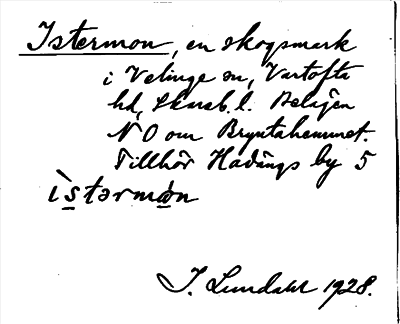 Istermon, en skogsmark
i Velinge sn, Vartofta
hd, Skarab. l. Belägen
N O om Bryntahemmet.
Tillhör Hadängs by 5
ìstərmȧn
J. Lundahl 1928.